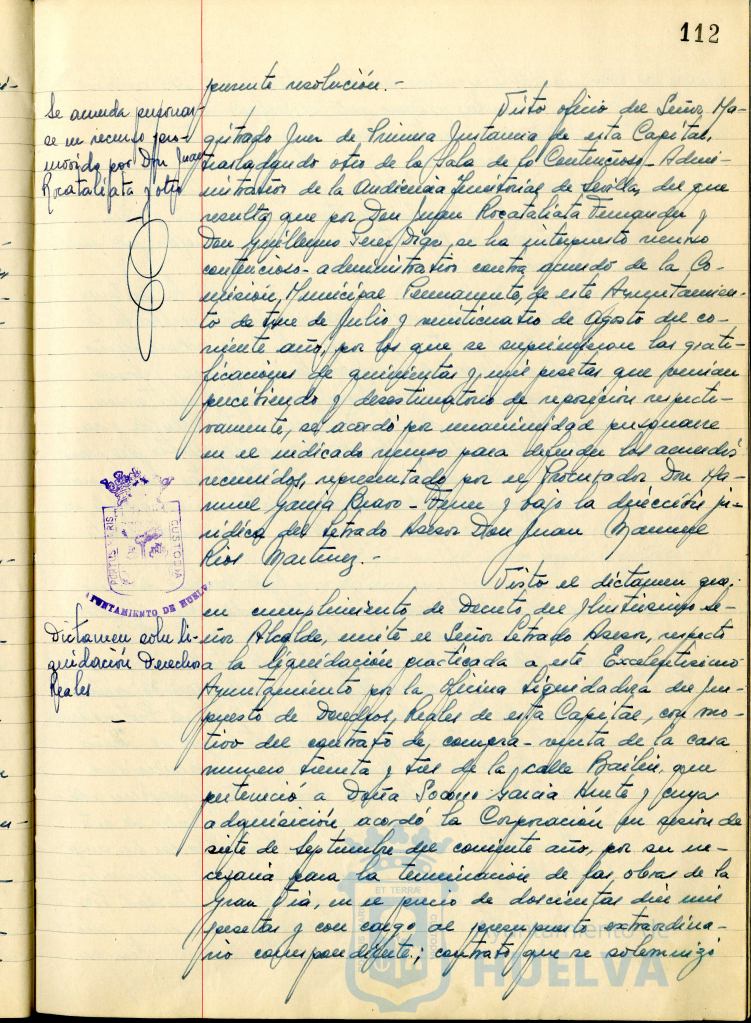 112
presente resolución.-
Se acuerda personar-
se en recurso pro-
movido por Don Juan
Rocatallata y otro
Visto oficio del Señor Ma-
gistrado Juez de Primera Instancia de esta Capital,
trasladando otro de la Sala de lo Contencioso-Admi-
nistrativo de la Audiencia Territorial de Sevilla, del que
resulta que por Don Juan Rocatallata Fernandez y
Don Guillermo Perez Digo, se ha interpuesto recurso
contencioso-administrativo contra acuerdo de la Co-
misión Municipal Permanente, de este Ayuntamien-
to de trece de Julio y veinticuatro de Agosto del co-
rriente año, por los que se suprimieron las grati-
ficaciones de quinientas y mil pesetas que venian
percibiendo y desestimatorio de reposición respecti-
vamente, se acordó por unanimidad personarse
en el indicado recurso para defender los acuerdos
recurridos, representado por el Procurador Don Ma-
nuel Garcia Bravo-Ferrer y bajo la dirección ju-
ridica del Letrado Asesor Don Juan Manuel
Rios Martinez.-
PORTUS MARIS
CUSTODIA
AYUNTAMIENTO DE HUELVA
Dictamen sobre li-
quidación Derechos
Reales
Visto el dictamen que,
en cumplimiento de Decreto del Ilustrisimo Se-
ñor Alcalde, emite el Señor Letrado Asesor, respecto
a la liquidación practicada a este Excelentisimo
Ayuntamiento por la Oficina Liquidadora del Im-
puesto de Derechos Reales de esta Capital, con mo-
tivo del contrato de compra-venta de la casa
numero treinta y tres de la calle Bailén, que
perteneció a Doña Socorro Garcia y cuya
adquisición acordó la Corporación en sesión de
siete de Septiembre del corriente año, por ser ne-
cesaria para la terminación de las obras de la
Gran Via, en el precio de doscientas diez mil
pesetas y con cargo al presupuesto extraordina-
rio correspondiente; contrato que se solemnizó
Ayuntamiento de
HUELVA